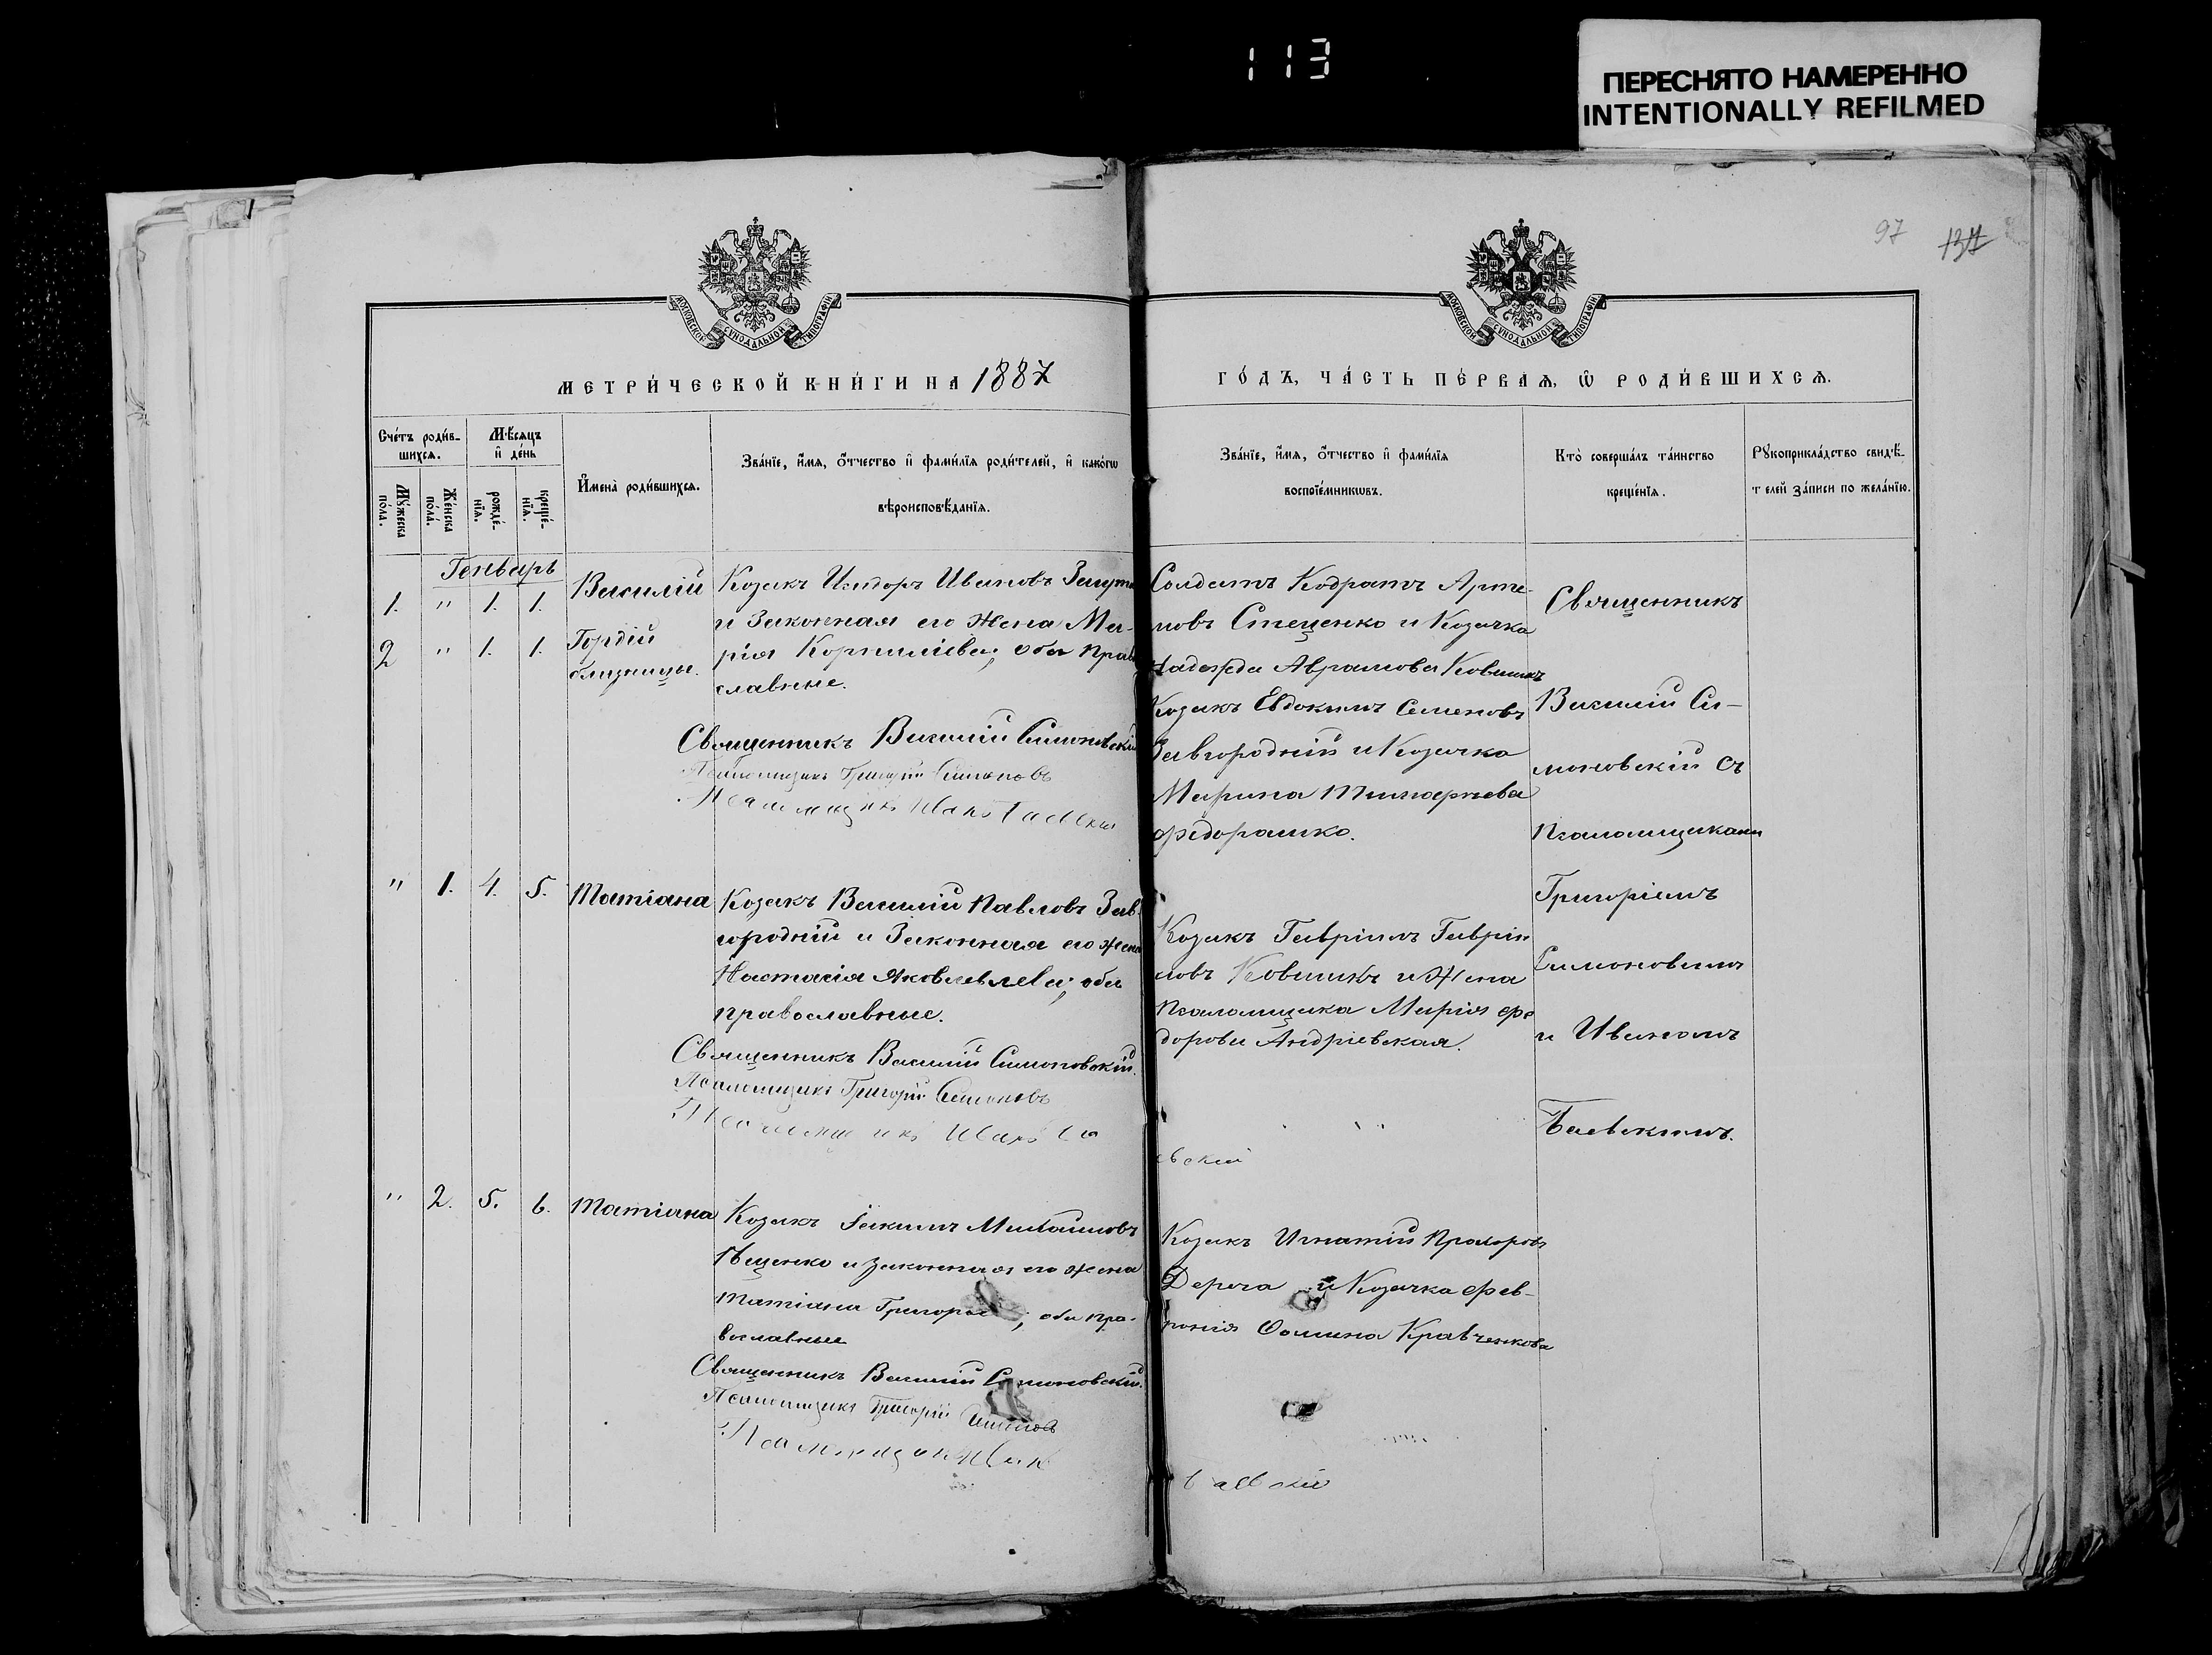 113
ПЕРЕСНЯТО НАМЕРЕННО
INTENTIONALLY REFILMED
97
МОСКОВСКОЙ СѴНОДАЛЬНОЙ ТИПОГРАФІИ
МОСКОВСКОЙ СѴНОДАЛЬНОЙ ТИПОГРАФІИ
МЕТРИ́ЧЕСКОЙ КНИ́ГИ НА 1887
ГО́ДЪ, ЧА́СТЬ ПЕ́РВАѦ, Ѡ҆ РОДИ́ВШИХСѦ.
Счéтъ роди́в-
шихсѧ.
Мꙋ́жеска
по́ла.
Же́нска
по́ла.
Мѣ́сѧцъ
и҆ де́нь
рожде́-
нїѧ.
креще́-
нїѧ.
И҆мена̀ роди́вшихсѧ.
Зва́нїе, и҆́мѧ, ѻ҆́тчество и҆ фами́лїѧ роди́телей, и҆ како́гѡ
вѣроисповѣ́данїѧ.
Зва́нїе, и҆́мѧ, ѻ҆́тчество и҆ фами́лїѧ
воспрїе́мникѡвъ.
Кто̀ соверша́лъ та́инство
креще́нїѧ.
Рꙋкоприкла́дство свидѣ́-
телей за́писи по жела́нїю.
Генварь
1. " 1. 1.
2 " 1. 1.
Василій
Гордій
близнецы.
Козакъ Исидоръ Ивановъ
и Законная его жена Ма-
рія Корниліева; оба Право
славные.
Священникъ Василій Симоновскій
Псаломщикъ Григорій Симоновъ
Псаломщикъ Иванъ
Солдатъ Кодратъ Арте-
мовъ Стеценко и Козачка
Надежда Аврамова
Козакъ Евдокимъ Семеновъ
Завгородній и Козачка
Марина
Федорашко.
Священникъ
Василій Си-
моновскій съ
Псаломщиками
Григоріемъ
Симоновымъ
и Иваномъ
Баевскимъ.
" 1. 4. 5. Татіана
Козакъ Василій Павловъ Зав-
городній и Законная его жена
Настасія Яковлева; оба
православные.
Священникъ Василій Симоновскій.
Псаломщикъ Григорій Симоновъ
Псаломщикъ Иванъ Ба
евскій
Козакъ Гавріилъ Гаврін
ловъ Ковшикъ и Жена
Псаломщика Марія Фе
дорова Андріевская.
" 2. 5. 6. Татіана
Козакъ Іакимъ Михайловъ
и законная его жена
Татіана ; оба пра-
вославные
Священникъ Василій Симоновскій.
Псаломщикъ Григорій Симоновъ
Псаломщикъ Иван
Баевскій
Козакъ Игнатій Прохоровъ
Дерега и Козачка Фев-
ронія Фомина Кравченкова